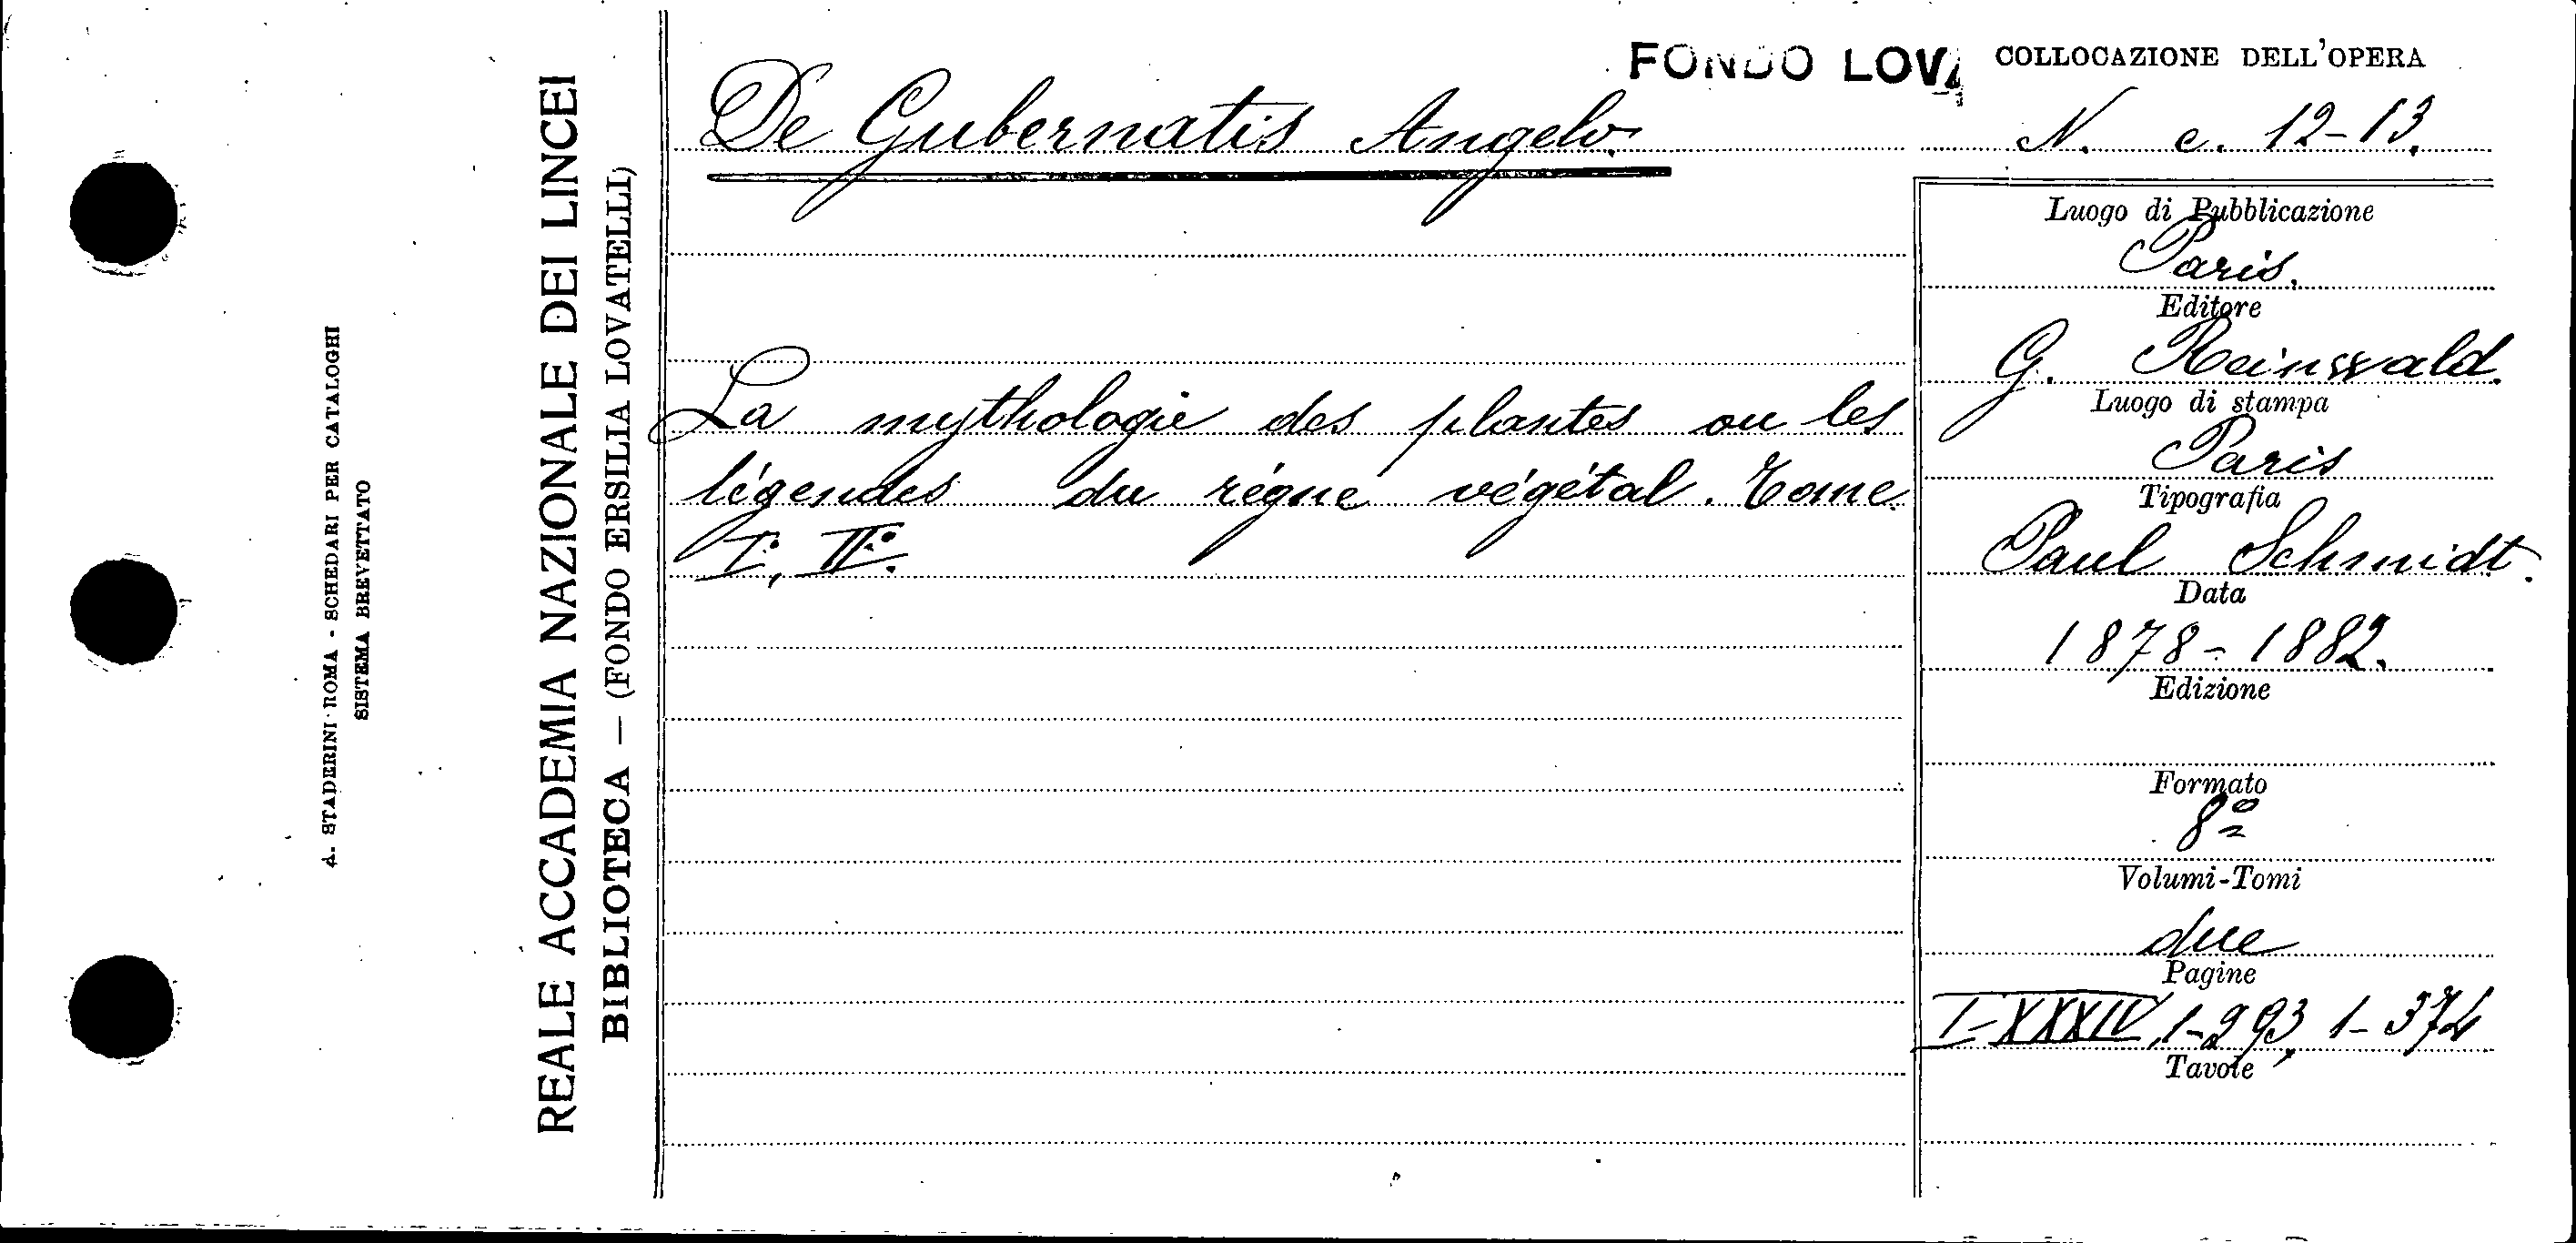 A. STADERINI ROMA - SCHEDARI PER CATALOGHI
SISTEMA BREVETTATO
REALE ACCADEMIA NAZIONALE DEI LINCEI
BIBLIOTECA — (FONDO ERSILIA LOVATELLI)
FONDO LOVA
COLLOCAZIONE DELL'OPERA
De Gubernatis Angelo.
N. c. 12-13.
La mythologie des plantes ou les
légendes du régne végétal. Tome
I°, II°.
Luogo di Pubblicazione
Paris.
Editore
G. Reinwald.
Luogo di stampa
Paris
Tipografia
Paul Schmidt.
Data
1878-1882.
Edizione
Formato
8°
Volumi-Tomi
due
Pagine
I-XXXIV, 1-293, 1-374
Tavole